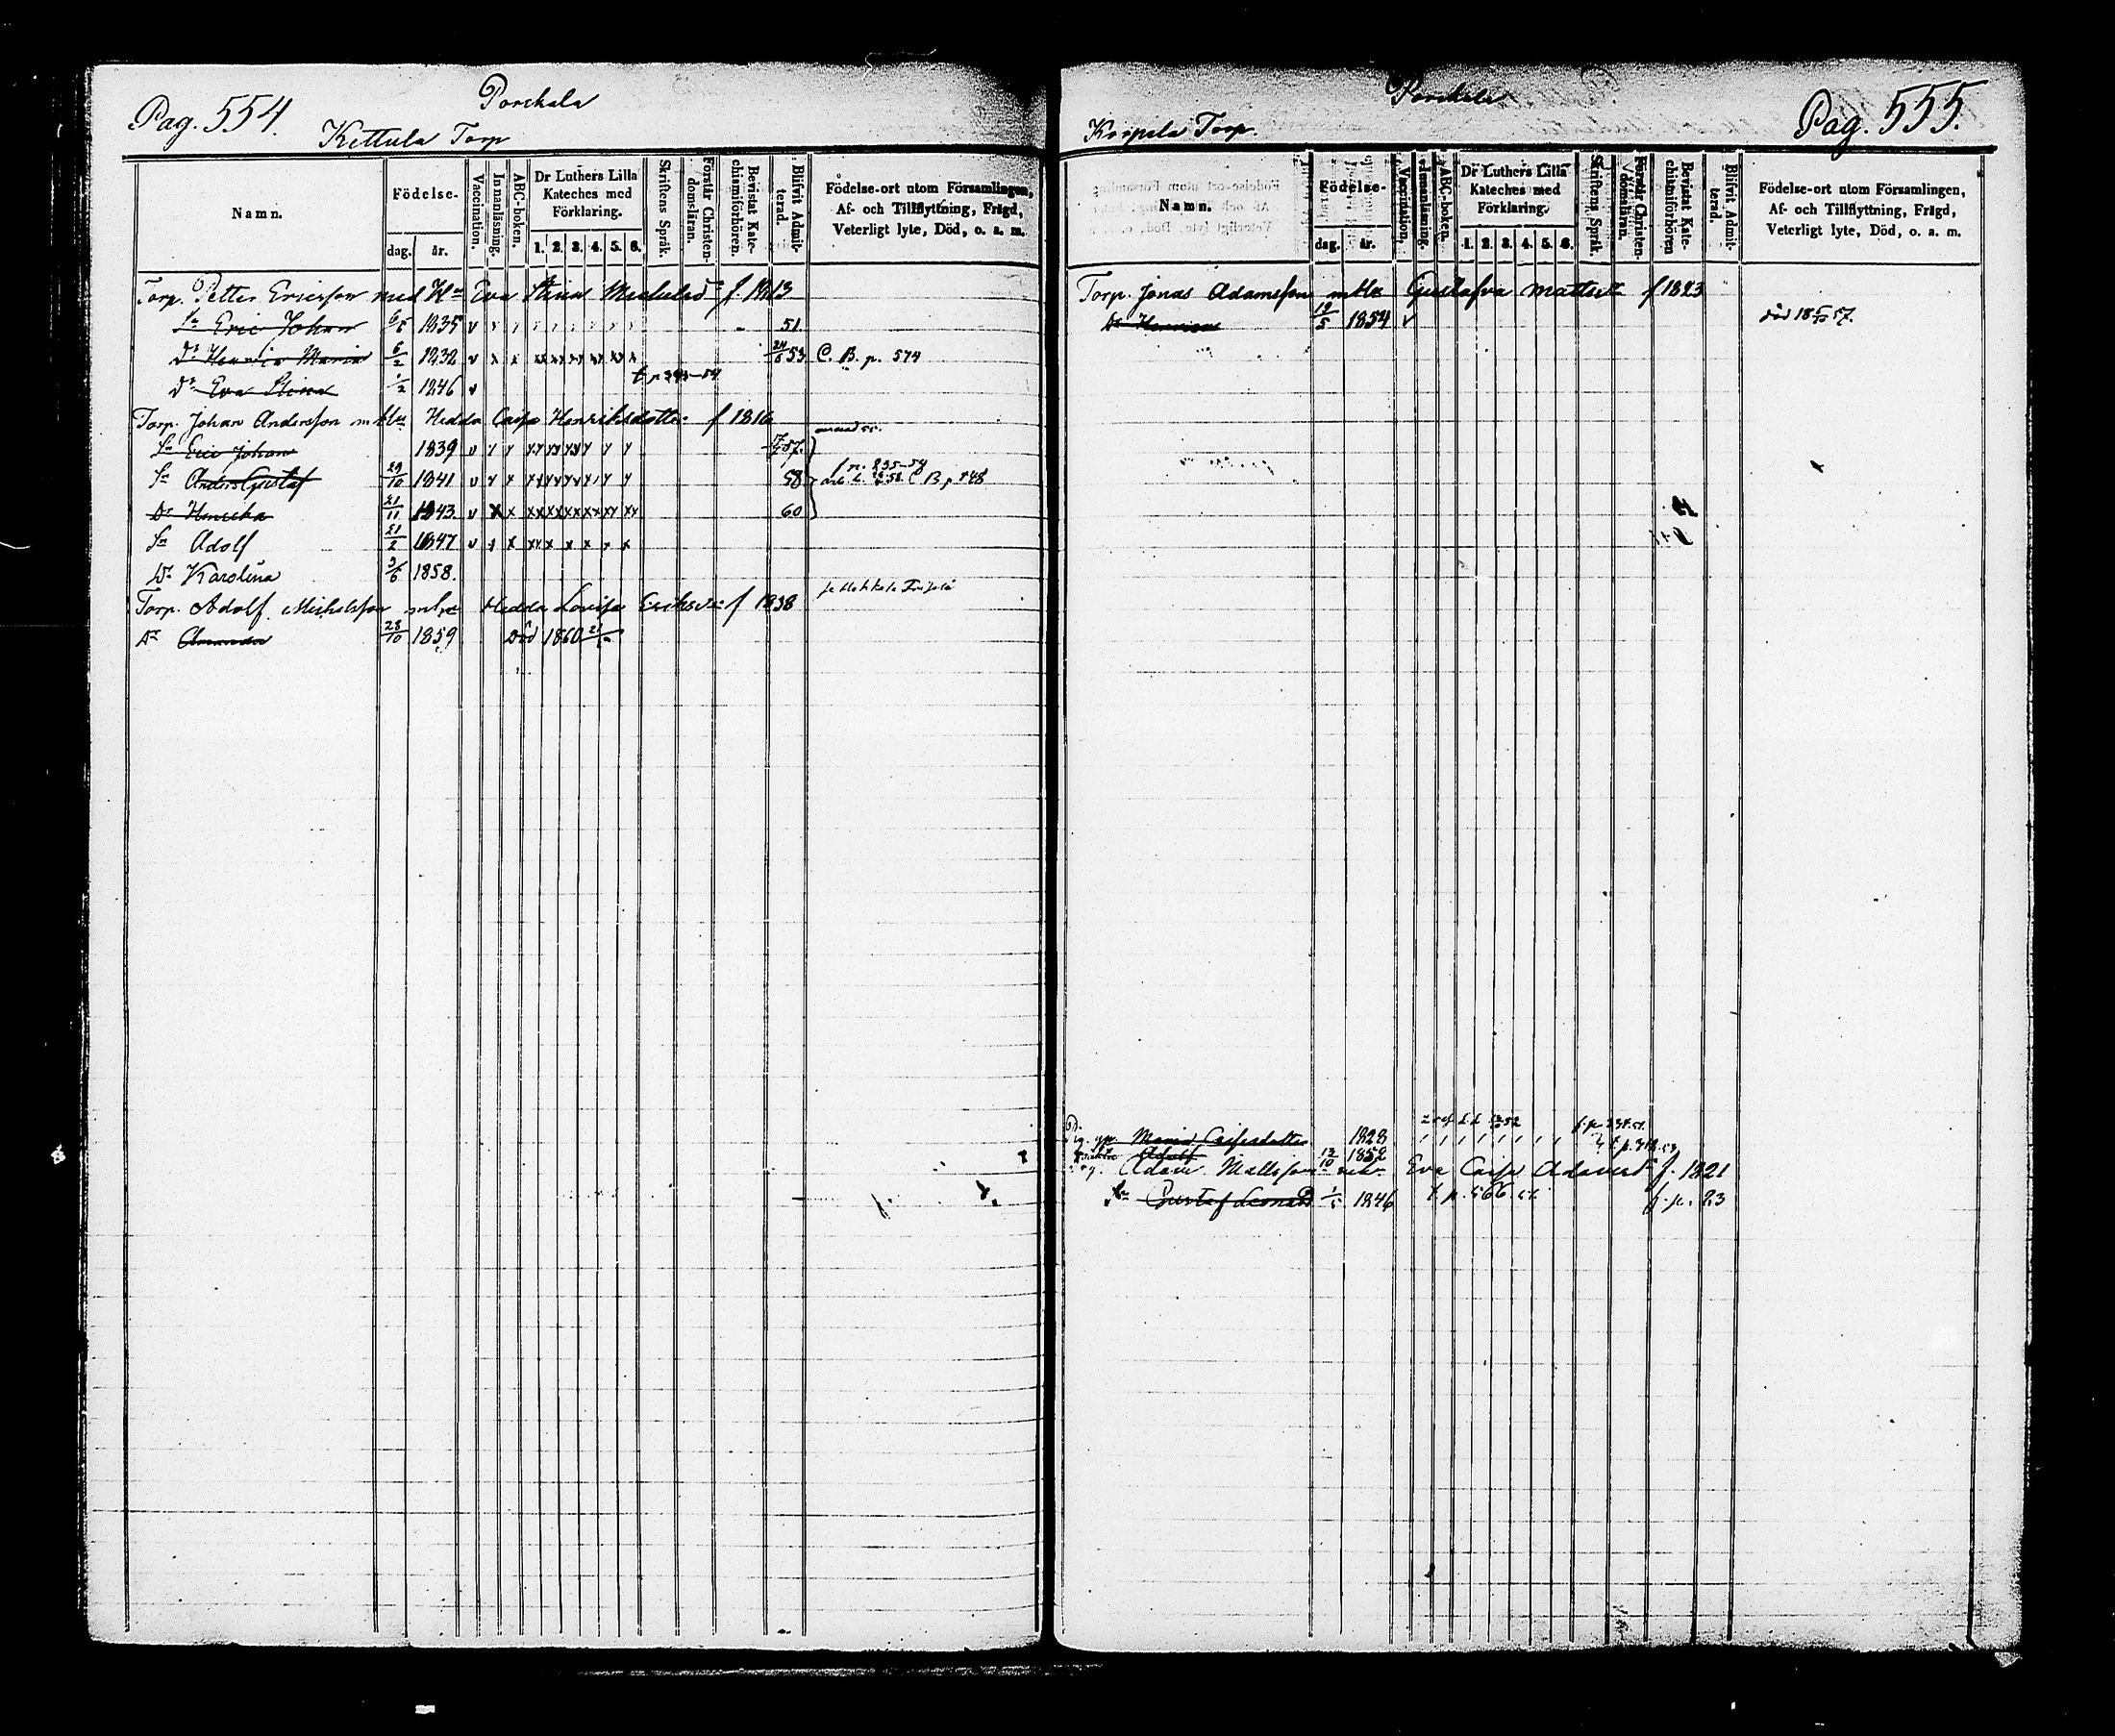 Pag. 554.
Porckala
Kettula Torp
Namn.
Födelse-
dag. år.
Vaccination.
Innanläsning.
ABC-boken.
Dr Luthers Lilla Kateches med Förklaring.
1. 2. 3. 4. 5. 6.
Skriftens Språk.
Förstår Christendomsläran.
Bevistat Katechismiförhören.
Blifvit Admitterad.
Födelse-ort utom Församlingen,
Af- och Tillflyttning, Frägd,
Veterligt lyte, Död, o. a. m.
Torp. Petter Ericsson med Hu Eva Stina Michelsd f. 1813
Sn Eric Johan 6/5 1835 v 51.
Dr Henrica Maria 6/2 1832 v x x xx xx xx xx xx x 24/6 53 C. B. p. 574
Dr Eva Stina 1/2 1846 v
Torp. Johan Andersson m Hu Hedda Caisa Henriksdotter f 1816
Sn Eric Johan 1839 v 57.
Sn Anders Gustaf 29/10 1841 v 58
Dr Henrika 21/11 1843. v x x xx xx xx xx xx xx 60
Sn Adolf 21/2 1847 v x x xxx x x x x
Dr Karolina 3/6 1858.
Torp. Adolf Michelsson m hu Hedda Lovisa Eriksd f 1838
Dr Amanda 28/10 1859 Död 1860
Porckala
Korpela Torp.
Pag. 555.
Namn.
Födelse-
dag. år.
Vaccination.
Innanläsning.
ABC-boken.
Dr Luthers Lilla Kateches med Förklaring.
1. 2. 3. 4. 5. 6.
Skriftens Språk.
Förstår Christendomsläran.
Bevistat Katechismiförhören
Blifvit Admitterad.
Födelse-ort utom Församlingen,
Af- och Tillflyttning, Frägd,
Veterligt lyte, Död, o. a. m.
Torp. Jonas Adamsson m Hu Gustafva Mattsd f 1823
Dr Henrica 19/5 1854 v död
Maria Caisasdotter 1828
Adolf 13/10 1852
Adam Mattsson m hu Eva Caisa Adamsd f. 1821
Sn Gustaf Leonard 1/5 1846 t p. 566 f. p. 23